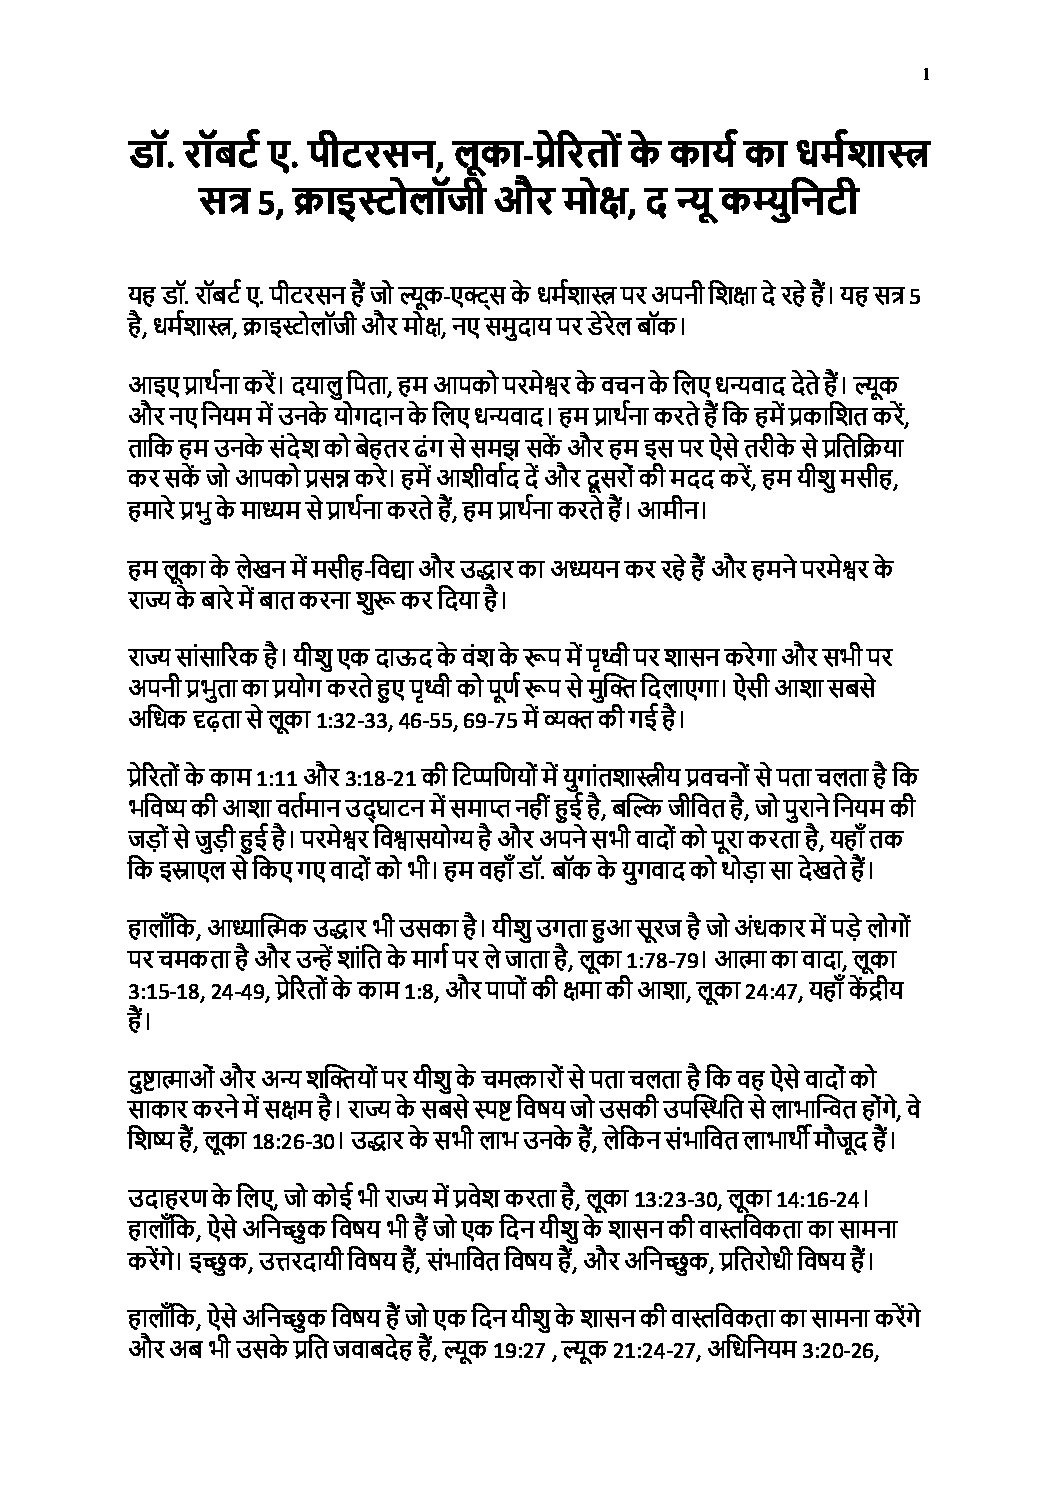 1
डॉ. रॉबर्ट ए. पीटरसन, लूका-प्रेरितों के कार्य का धर्मशास्त्र
सत्र 5, क्राइस्टोलॉजी और मोक्ष, द न्यू कम्युनिटी
यह डॉ. रॉबर्ट ए. पीटरसन हैं जो ल्यूक-एक्ट्स के धर्मशास्त्र पर अपनी शिक्षा दे रहे हैं। यह सत्र 5
है, धर्मशास्त्र, क्राइस्टोलॉजी और मोक्ष, नए समुदाय पर डेरेल बॉक।
आइए प्रार्थना करें। दयालु पिता, हम आपको परमेश्वर के वचन के लिए धन्यवाद देते हैं। ल्यूक
और नए नियम में उनके योगदान के लिए धन्यवाद। हम प्रार्थना करते हैं कि हमें प्रकाशित करें,
ताकि हम उनके संदेश को बेहतर ढंग से समझ सकें और हम इस पर ऐसे तरीके से प्रतिक्रिया
कर सकें जो आपको प्रसन्न करे। हमें आशीर्वाद दें और दूसरों की मदद करें, हम यीशु मसीह,
हमारे प्रभु के माध्यम से प्रार्थना करते हैं, हम प्रार्थना करते हैं। आमीन।
हम लूका के लेखन में मसीह-विद्या और उद्धार का अध्ययन कर रहे हैं और हमने परमेश्वर के
राज्य के बारे में बात करना शुरू कर दिया है।
राज्य सांसारिक है। यीशु एक दाऊद के वंश के रूप में पृथ्वी पर शासन करेगा और सभी पर
अपनी प्रभुता का प्रयोग करते हुए पृथ्वी को पूर्ण रूप से मुक्ति दिलाएगा। ऐसी आशा सबसे
अधिक दृढ़ता से लूका 1:32-33, 46-55, 69-75 में व्यक्त की गई है।
प्रेरितों के काम 1:11 और 3:18-21 की टिप्पणियों में युगांतशास्त्रीय प्रवचनों से पता चलता है कि
भविष्य की आशा वर्तमान उद्घाटन में समाप्त नहीं हुई है, बल्कि जीवित है, जो पुराने नियम की
जड़ों से जुड़ी हुई है। परमेश्वर विश्वासयोग्य है और अपने सभी वादों को पूरा करता है, यहाँ तक
कि इस्राएल से किए गए वादों को भी। हम वहाँ डॉ. बॉक के युगवाद को थोड़ा सा देखते हैं।
हालाँकि, आध्यात्मिक उद्धार भी उसका है। यीशु उगता हुआ सूरज है जो अंधकार में पड़े लोगों
पर चमकता है और उन्हें शांति के मार्ग पर ले जाता है, लूका 1:78-79। आत्मा का वादा, लूका
3:15-18, 24-49, प्रेरितों के काम 1:8, और पापों की क्षमा की आशा, लूका 24:47, यहाँ केंद्रीय
हैं।
दुष्टात्माओं और अन्य शक्तियों पर यीशु के चमत्कारों से पता चलता है कि वह ऐसे वादों को
साकार करने में सक्षम है। राज्य के सबसे स्पष्ट विषय जो उसकी उपस्थिति से लाभान्वित होंगे, वे
शिष्य हैं, लूका 18:26-30। उद्धार के सभी लाभ उनके हैं, लेकिन संभावित लाभार्थी मौजूद हैं।
उदाहरण के लिए, जो कोई भी राज्य में प्रवेश करता है, लूका 13:23-30, लूका 14:16-24।
हालाँकि, ऐसे अनिच्छुक विषय भी हैं जो एक दिन यीशु के शासन की वास्तविकता का सामना
करेंगे। इच्छुक, उत्तरदायी विषय हैं, संभावित विषय हैं, और अनिच्छुक, प्रतिरोधी विषय हैं।
हालाँकि, ऐसे अनिच्छुक विषय हैं जो एक दिन यीशु के शासन की वास्तविकता का सामना करेंगे
और अब भी उसके प्रति जवाबदेह हैं, ल्यूक 19:27 , ल्यूक 21:24-27, अधिनियम 3:20-26,